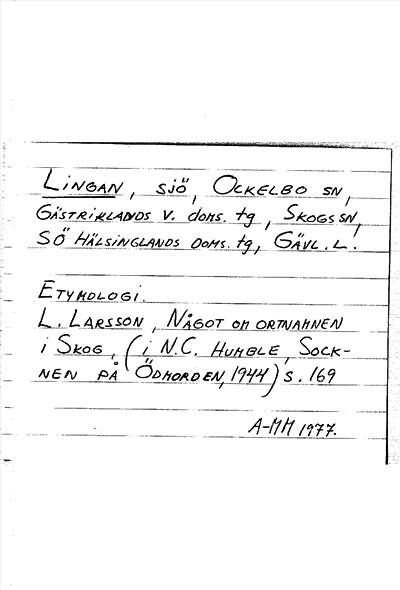 LINGAN, SJÖ, OCKELBO SN,
GÄSTRIKLANDS V. doms. tg, SKOGS SN,
SÖ HÄLSINGLANDS DOMS. tg, GÄVL. L.
ETYMOLOGI.
L. LARSSON, NÅGOT OM ORTNAMNEN
i SKOG, (i N.C. HUMBLE, SOCK-
NEN PÅ ÖDMORDEN, 1944) s. 169
A-MM 1977.